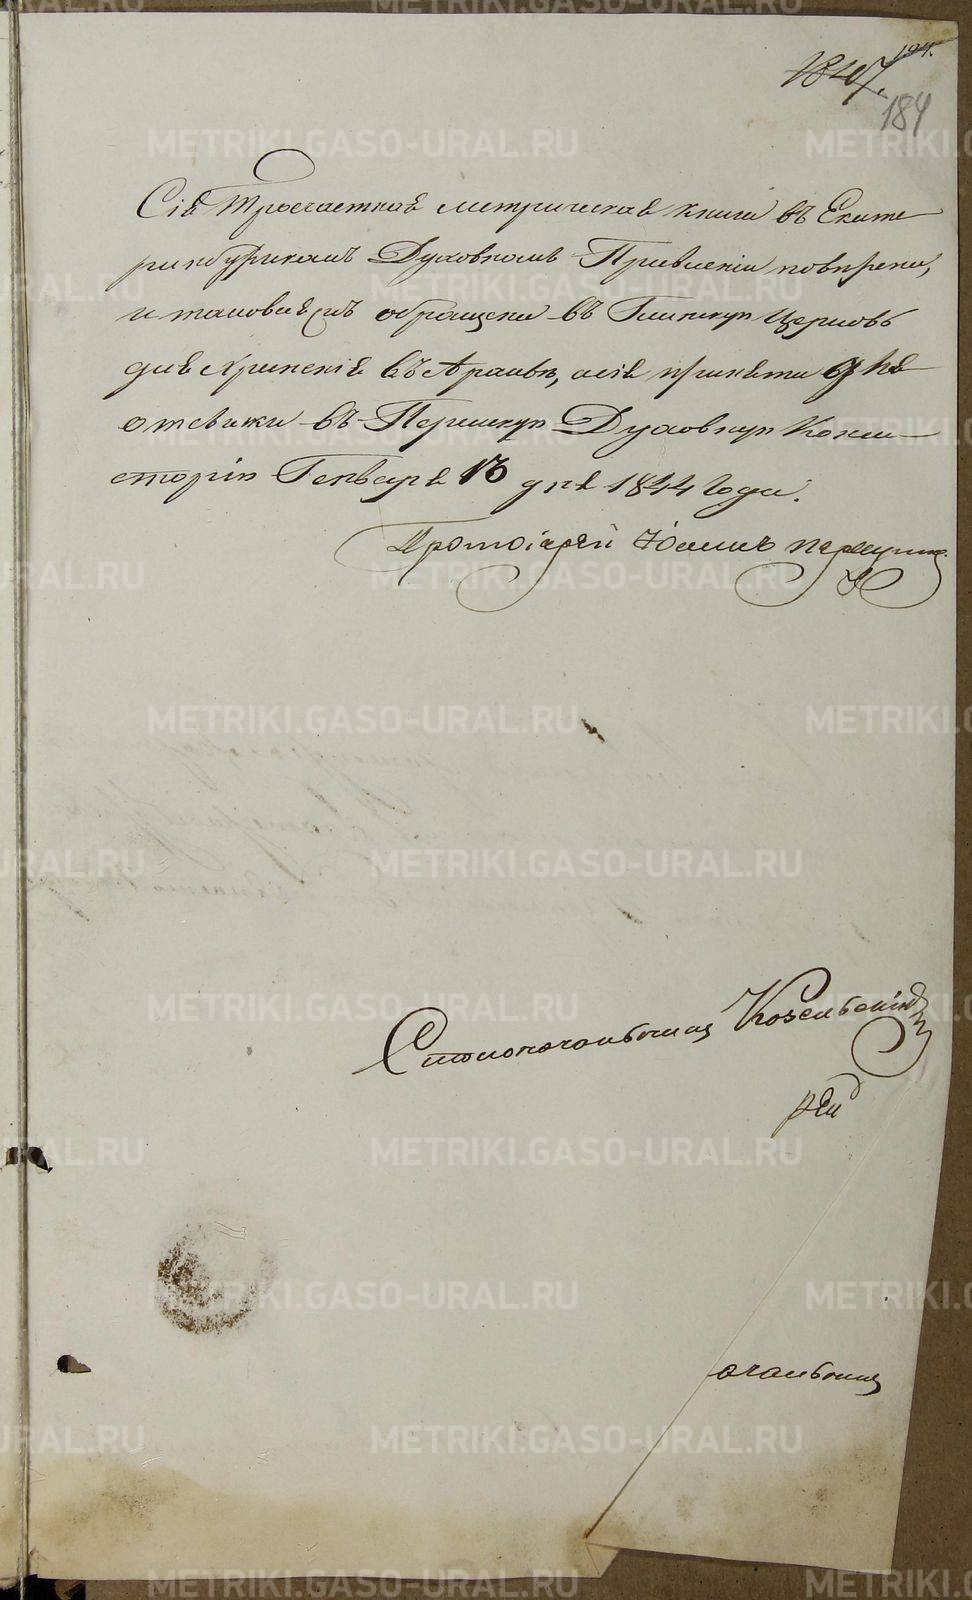 194.
1847.
184
Сія Троечастная метрическая книга въ Екате
ринбургскомъ Духовномъ Правленіи повѣрена,
и таковая съ обращена въ Градскую Церковь
для храненія въ Архивѣ, а сія принята для
отсылки въ Пермскую Духовную Конси
сторію Генваря 13 дня 1844 года.
Протоіерей Іоаннъ
Столоначальникъ Козельскій
оначальник
METRIKI.GASO-URAL.RU